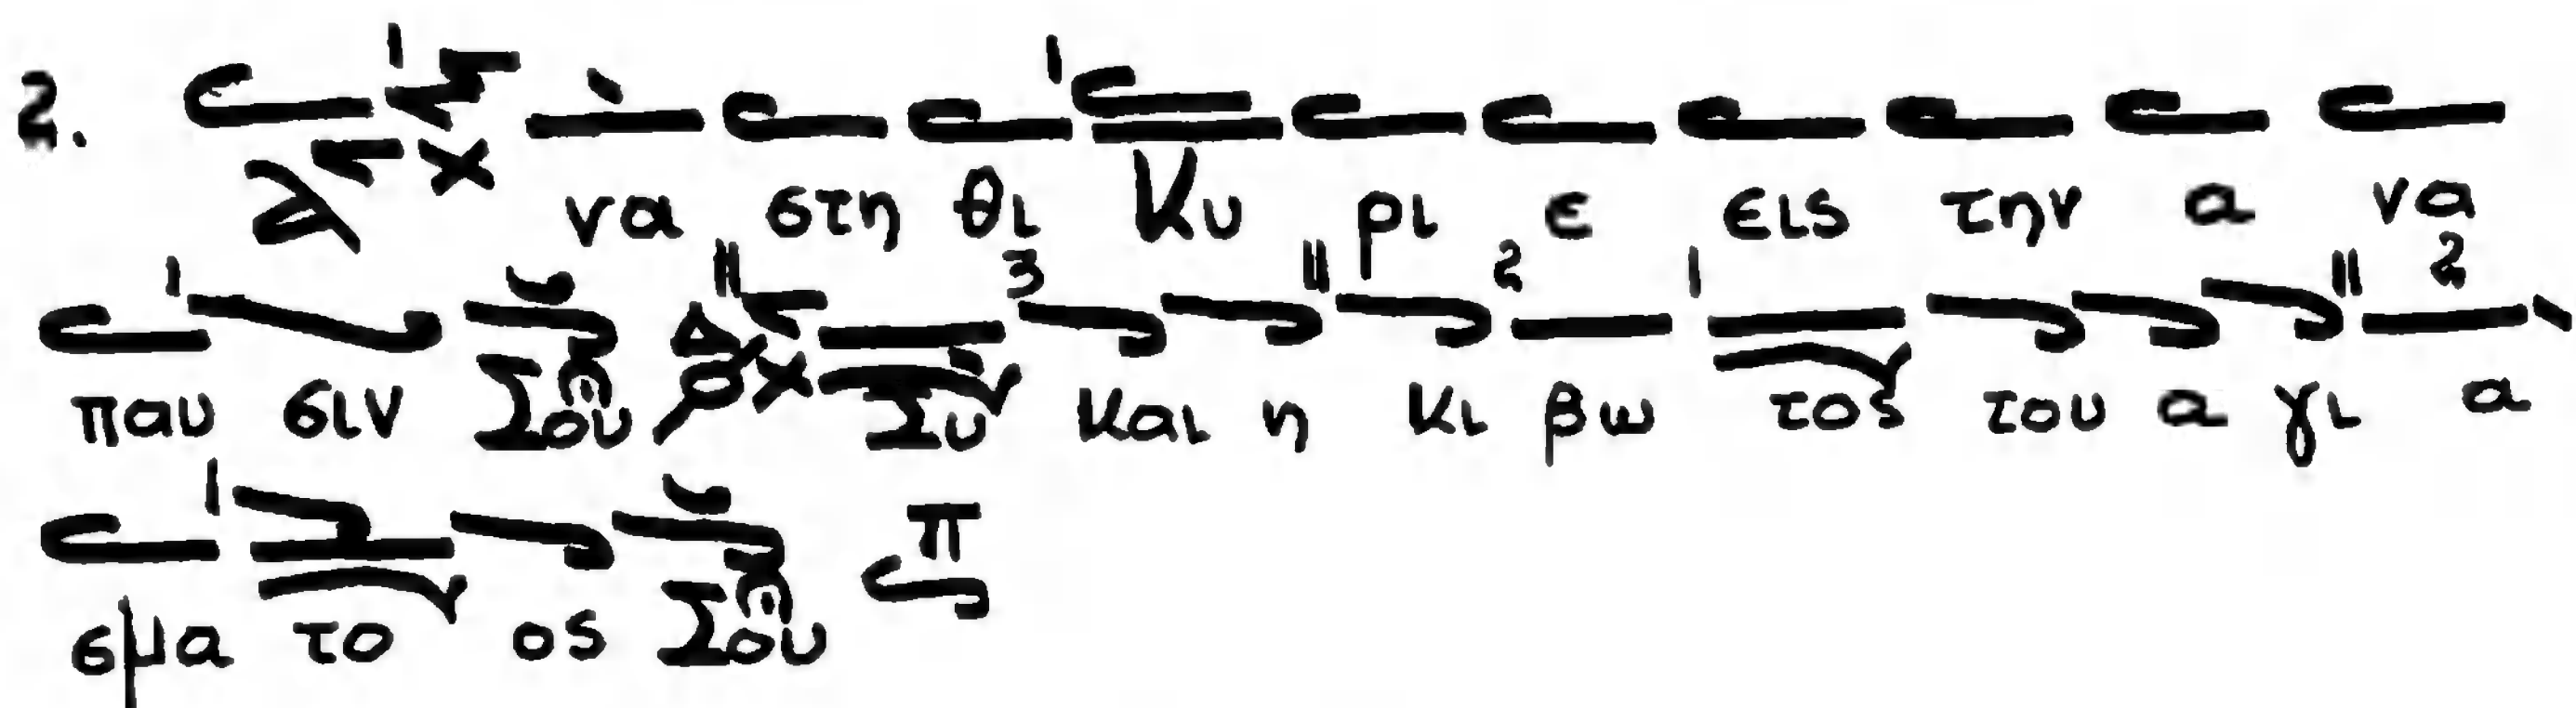 2. Ανα στη θι Κυ ρι ε εις την α να
παυ σιν Σου Συ και η κι βω τος του α γι α
σμα το ος Σου